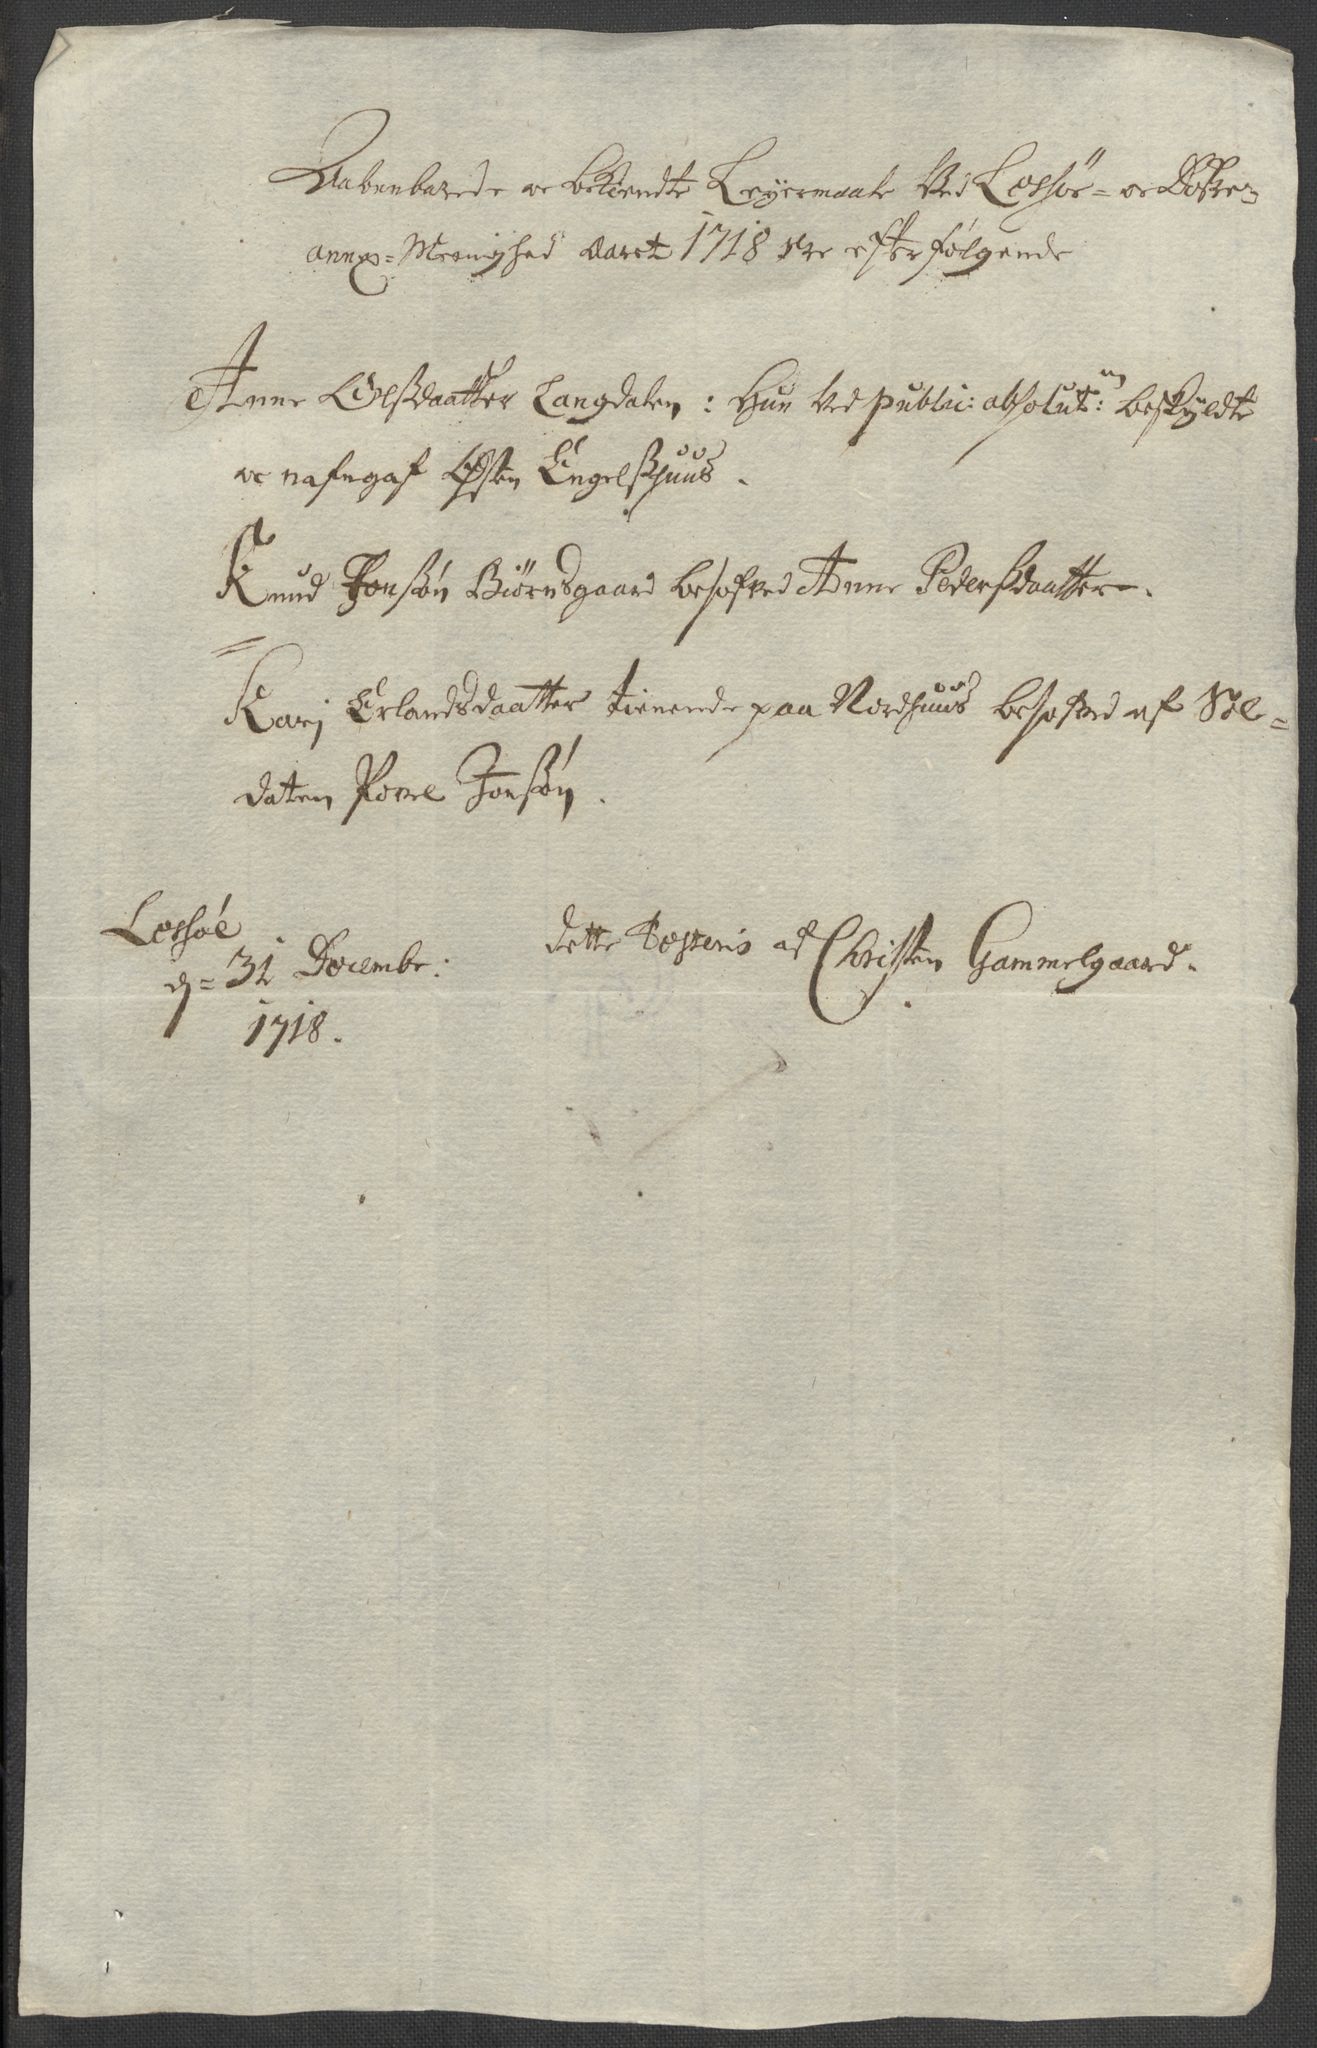 Aabenbarede oc bekiendte Leyermaale Ved Lessöe= oc Dofre=
annex=Menighed Aaret 1718 ere efterfølgende
Anne Olsdaatter Langdalen: Hun Ved public: absolut:<sup>m</sup> beskyldte
oc nafngaf Østen Engelshuus.
Knud Jonssøn Biörnsgaard besofved Anne Pedersdaatter.
Karj Erlandsdaatter tienende paa Nordhuus besofved af Sol=
daten Povel Jonssøn.
Lessøe
d= 31 Decembr:
1718.
dette Testeris af Christen Gammelgaard.